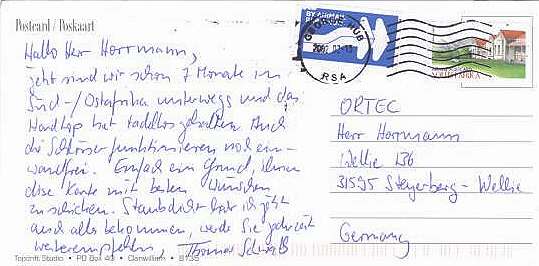 Postcard / Poskaart
Hallo Herr Horrmann,
jetzt sind wir schon 7 Monate in
Süd-/Ostafrika unterwegs und das
Hardtop hat tadellos gehalten. Auch
die Schlösser funktionieren noch ein-
wandfrei. Einfach ein Grund, ihnen
diese Karte mit besten Wünschen
zu schicken. Staubdicht habe ich jetzt
auch alles bekommen, werde Sie jederzeit
weiterempfehlen, Thomas
Topzirift Studio • PO Box 40 • Clanwilliam • 8135
BY AIRMAIL
GEORGE HUB
RSA
SOUTH AFRICA
ORTEC
Herr Horrmann
Wellie 136
31595 Steyerberg - Wellie
Germany